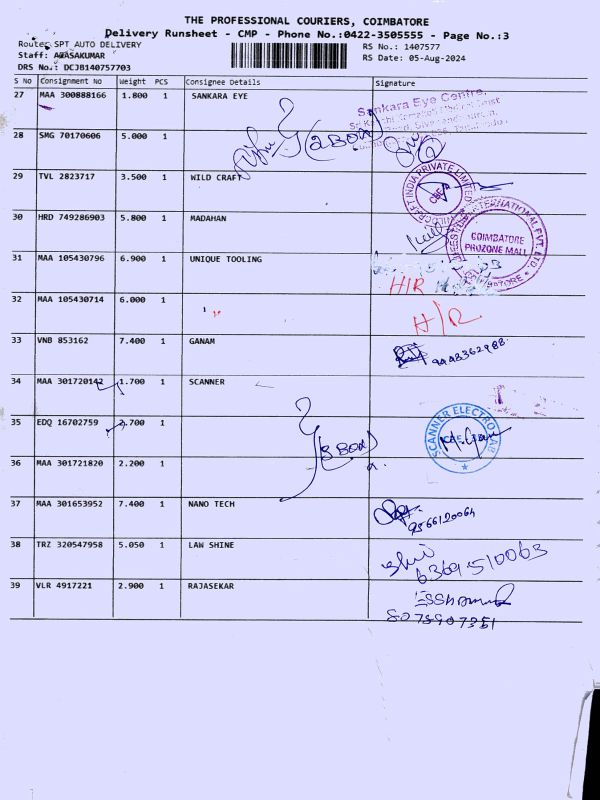 THE PROFESSIONAL COURIERS, COIMBATORE
Delivery Runsheet - CMP - Phone No.:0422-3505555 - Page No.:3
Route: SPT AUTO DELIVERY
RS No.: 1407577
Staff: AWASAKUMAR
RS Date: 05-Aug-2024
DRS No.: DCJB1407577703
S No Consignment No Weight PCS Consignee Details Signature
27 MAA 300888166 1.800 1 SANKARA EYE
Sankara Eye Centre,
28 SMG 70170606 5.000 1
(2 BOX)
29 TVL 2823717 3.500 1 WILD CRAFT
30 HRD 749286903 5.800 1 MADAHAN
COIMBATORE
PROZONE MALL
31 MAA 105430796 6.900 1 UNIQUE TOOLING
H/R
32 MAA 105430714 6.000 1
H/R
33 VNB 853162 7.400 1 GANAM
34 MAA 301720142 1.700 1 SCANNER
35 EDQ 16702759 2.700 1
(3 BOX)
SCANNER ELECTRO LAB
36 MAA 301721820 2.200 1
37 MAA 301653952 7.400 1 NANO TECH
9566120064
38 TRZ 320547958 5.050 1 LAW SHINE
6369510063
39 VLR 4917221 2.900 1 RAJASEKAR
8075907351